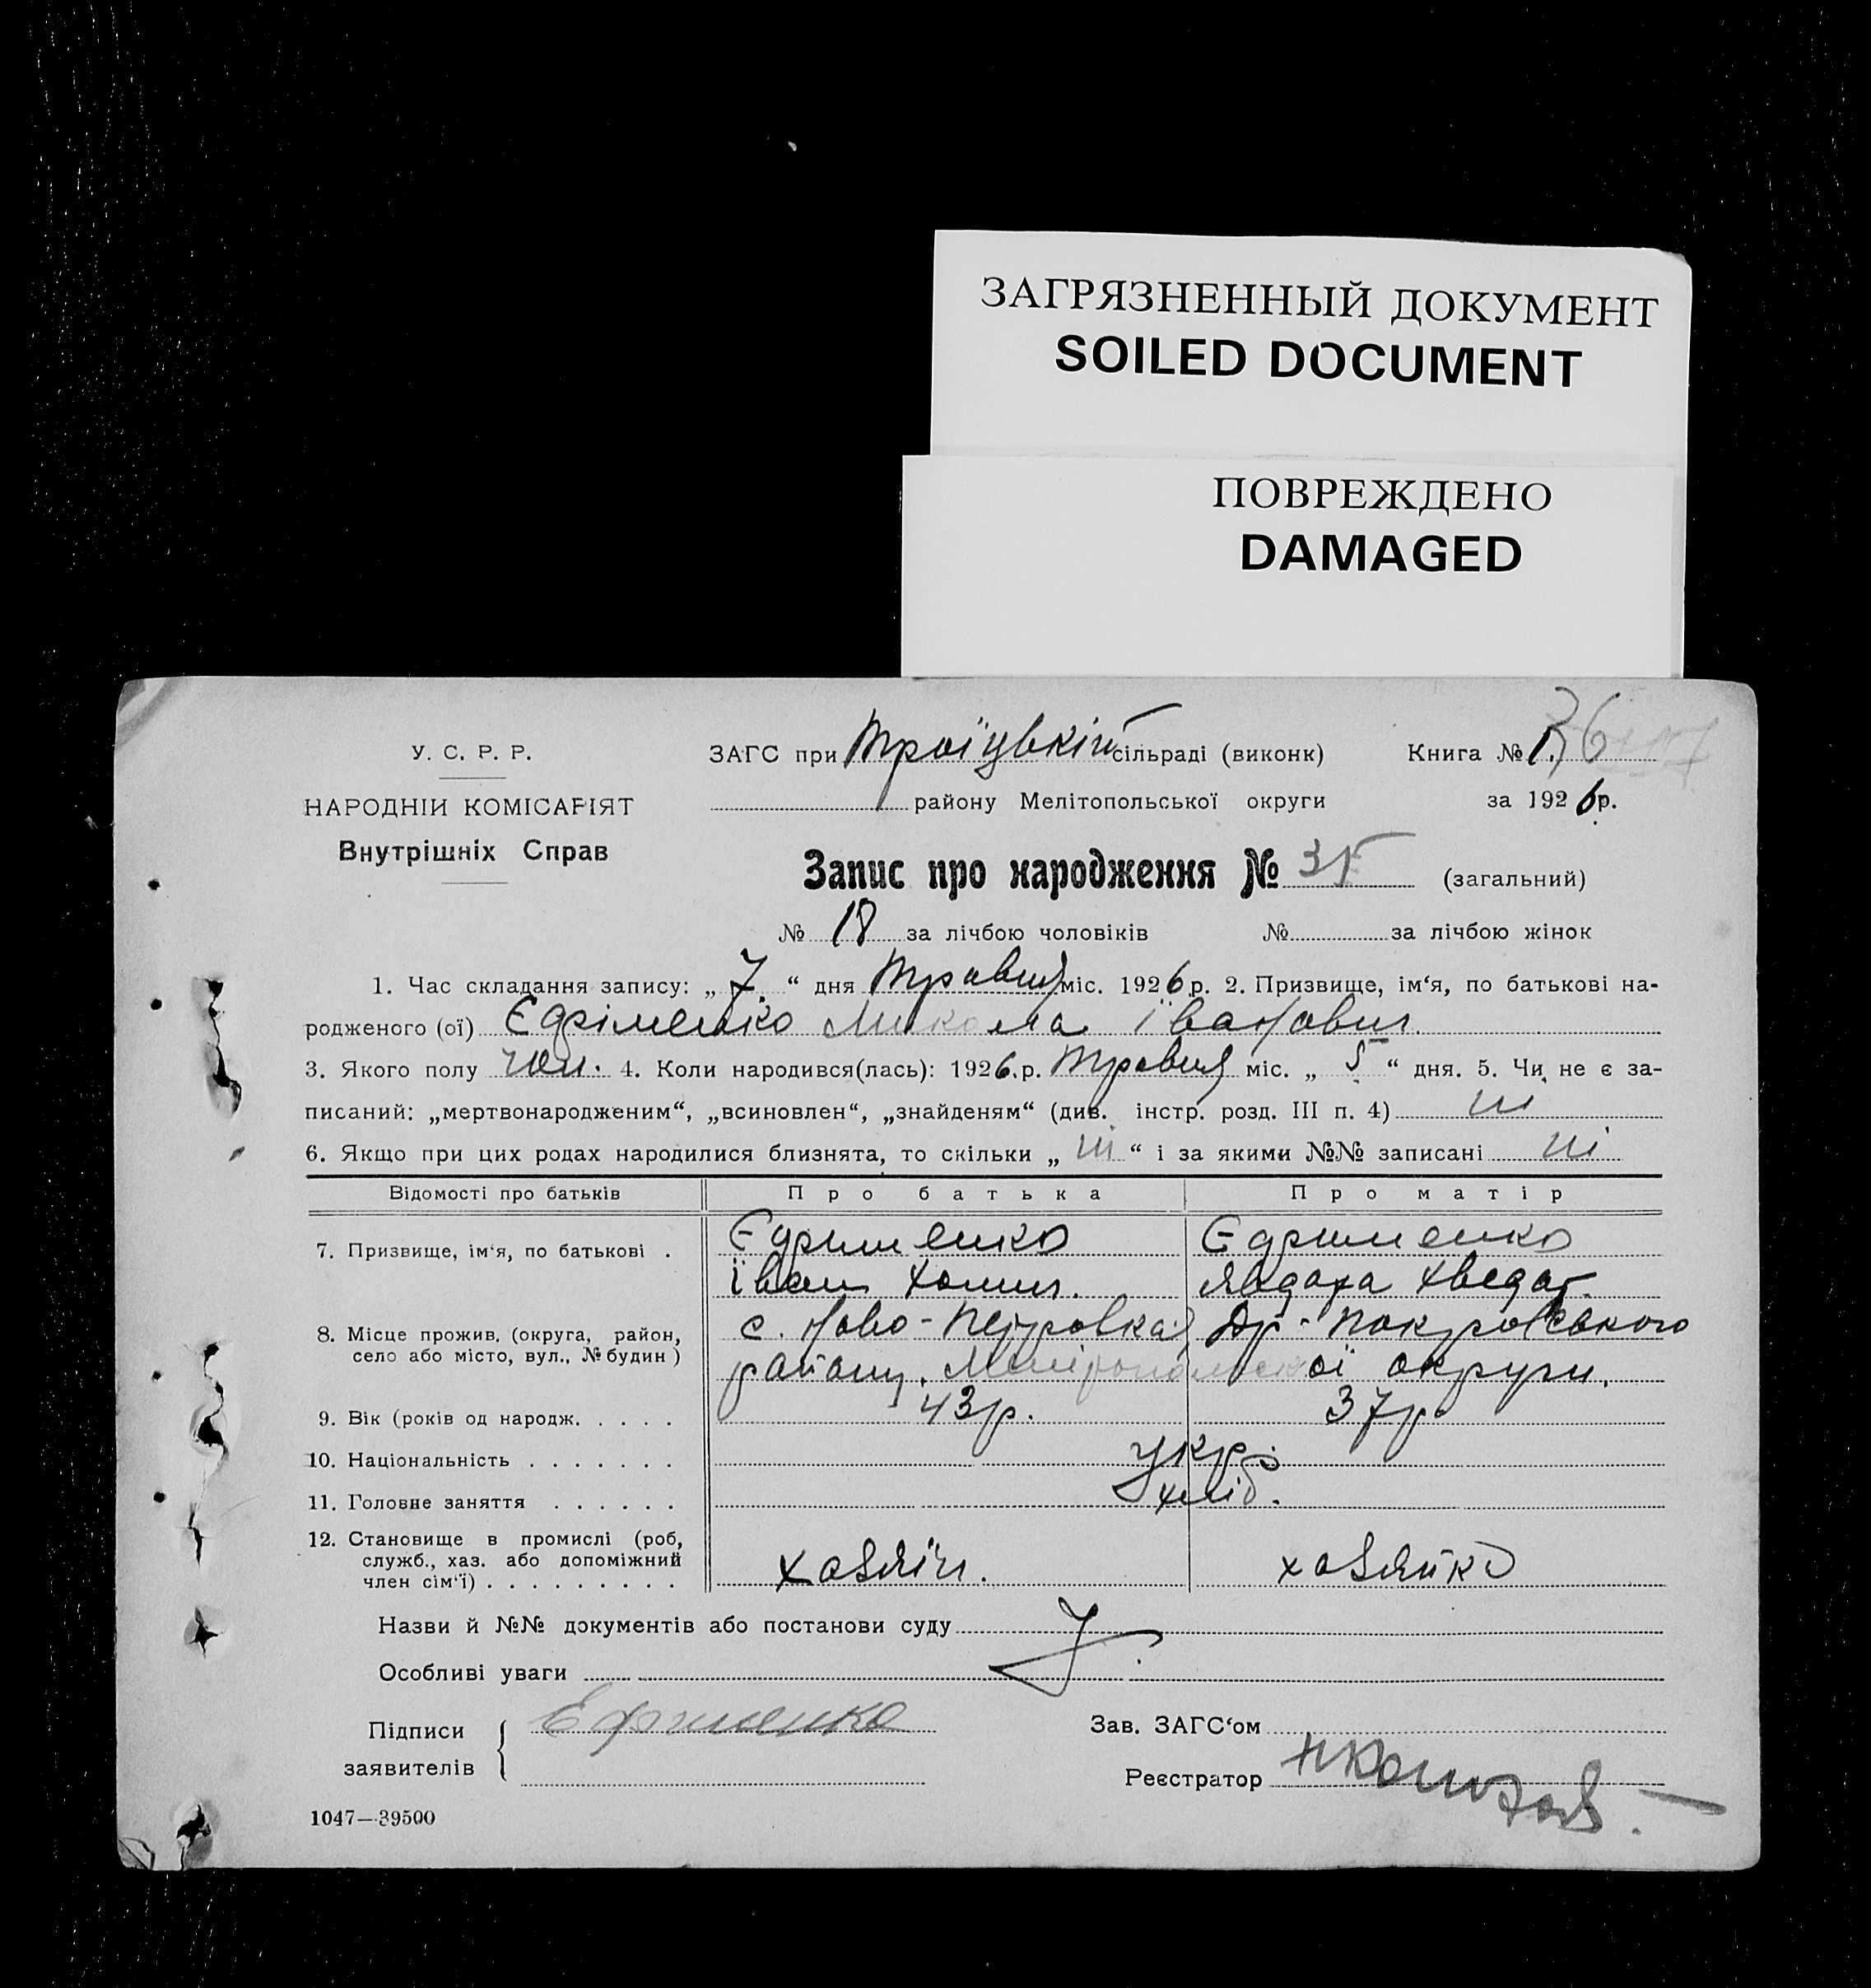 ЗАГРЯЗНЕННЫЙ ДОКУМЕНТ
SOILED DOCUMENT
ПОВРЕЖДЕНО
DAMAGED
У. С. Р. Р.
НАРОДНІЙ КОМІСАРІЯТ
Внутрішніх Справ
ЗАГС при Троїцькій сільраді (виконк)
району Мелітопольської округи
Книга № 1.
за 1926 р.
Запис про народження № 35 (загальний)
№ 18 за лічбою чоловіків № за лічбою жінок
1. Час складання запису: „ 7 “ дня Травня міс. 1926 р. 2. Призвище, ім‘я, по батькові на-
родженого (ої) Єфріменко Микола Іванович
3. Якого полу чол. 4. Коли народився(лась): 1926.р. Травня міс. „ 5 “ дня. 5. Чи не є за-
писаний: „мертвонародженим“, „всиновлен“, „знайденям“ (див. інстр. розд. III п. 4) ні
6. Якщо при цих родах народилися близнята, то скільки „ ні “ і за якими №№ записані ні
Відомості про батьків Про батька Про матір
7. Призвище, ім‘я, по батькові . Єфрименко Єфрименко
Іван Хомич. Явдоха Хведор.
8. Місце прожив. (округа, район, село або місто, вул., № будин ) с. Ново-Петровка Др-Покровського
району. Мелітопольської округи.
9. Вік (років од народж. . . . . 43 р. 37 р.
10. Національність . . . . . . . укр.
11. Головне заняття . . . . . . хліб.
12. Становище в промислі (роб, служб., хаз. або допоміжний член сім‘ї) . . . . . . . . . хазяїн. хазяйка
Назви й №№ документів або постанови суду
Особливі уваги
Підписи заявителів Ефрименко
Зав. ЗАГС‘ом
Реєстратор
1047—39500